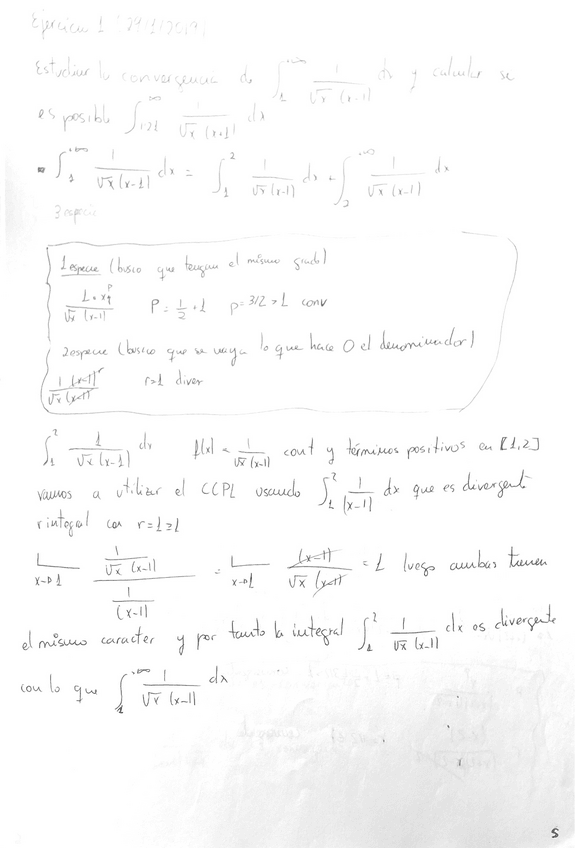 Ejercicio 1 (29/1/2019)
Estudiar la convergencia de ∫₁^{+∞} 1/(√x (x-1)) dx y calcular se
es posible ∫₁^{∞} 1/(√x (x+1)) dx
- ∫₁^{+∞} 1/(√x (x-1)) dx = ∫₁² 1/(√x (x-1)) dx + ∫₂^{+∞} 1/(√x (x-1)) dx
3 especie
1 especie (busco que tengan el mismo grado)
1·x^p/(√x (x-1)) P = 1/2 + 1 p = 3/2 > 1 conv
2 especie (busco que se vaya lo que hace 0 el denominador)
1 (x-1)^r/(√x (x-1)) r=1 diver
∫₁² 1/(√x (x-1)) dx f(x) = 1/(√x (x-1)) cont y términos positivos en [1,2]
vamos a utilizar el CCPL usando ∫₁² 1/(x-1) dx que es divergente
r integral con r=1≥1
L x→1 (1/(√x (x-1)))/(1/(x-1)) = L x→1 (x-1)/(√x (x-1)) = 1 luego ambas tienen
el mismo caracter y por tanto la integral ∫₁² 1/(√x (x-1)) dx es divergente
con lo que ∫₁^{+∞} 1/(√x (x-1)) dx
5